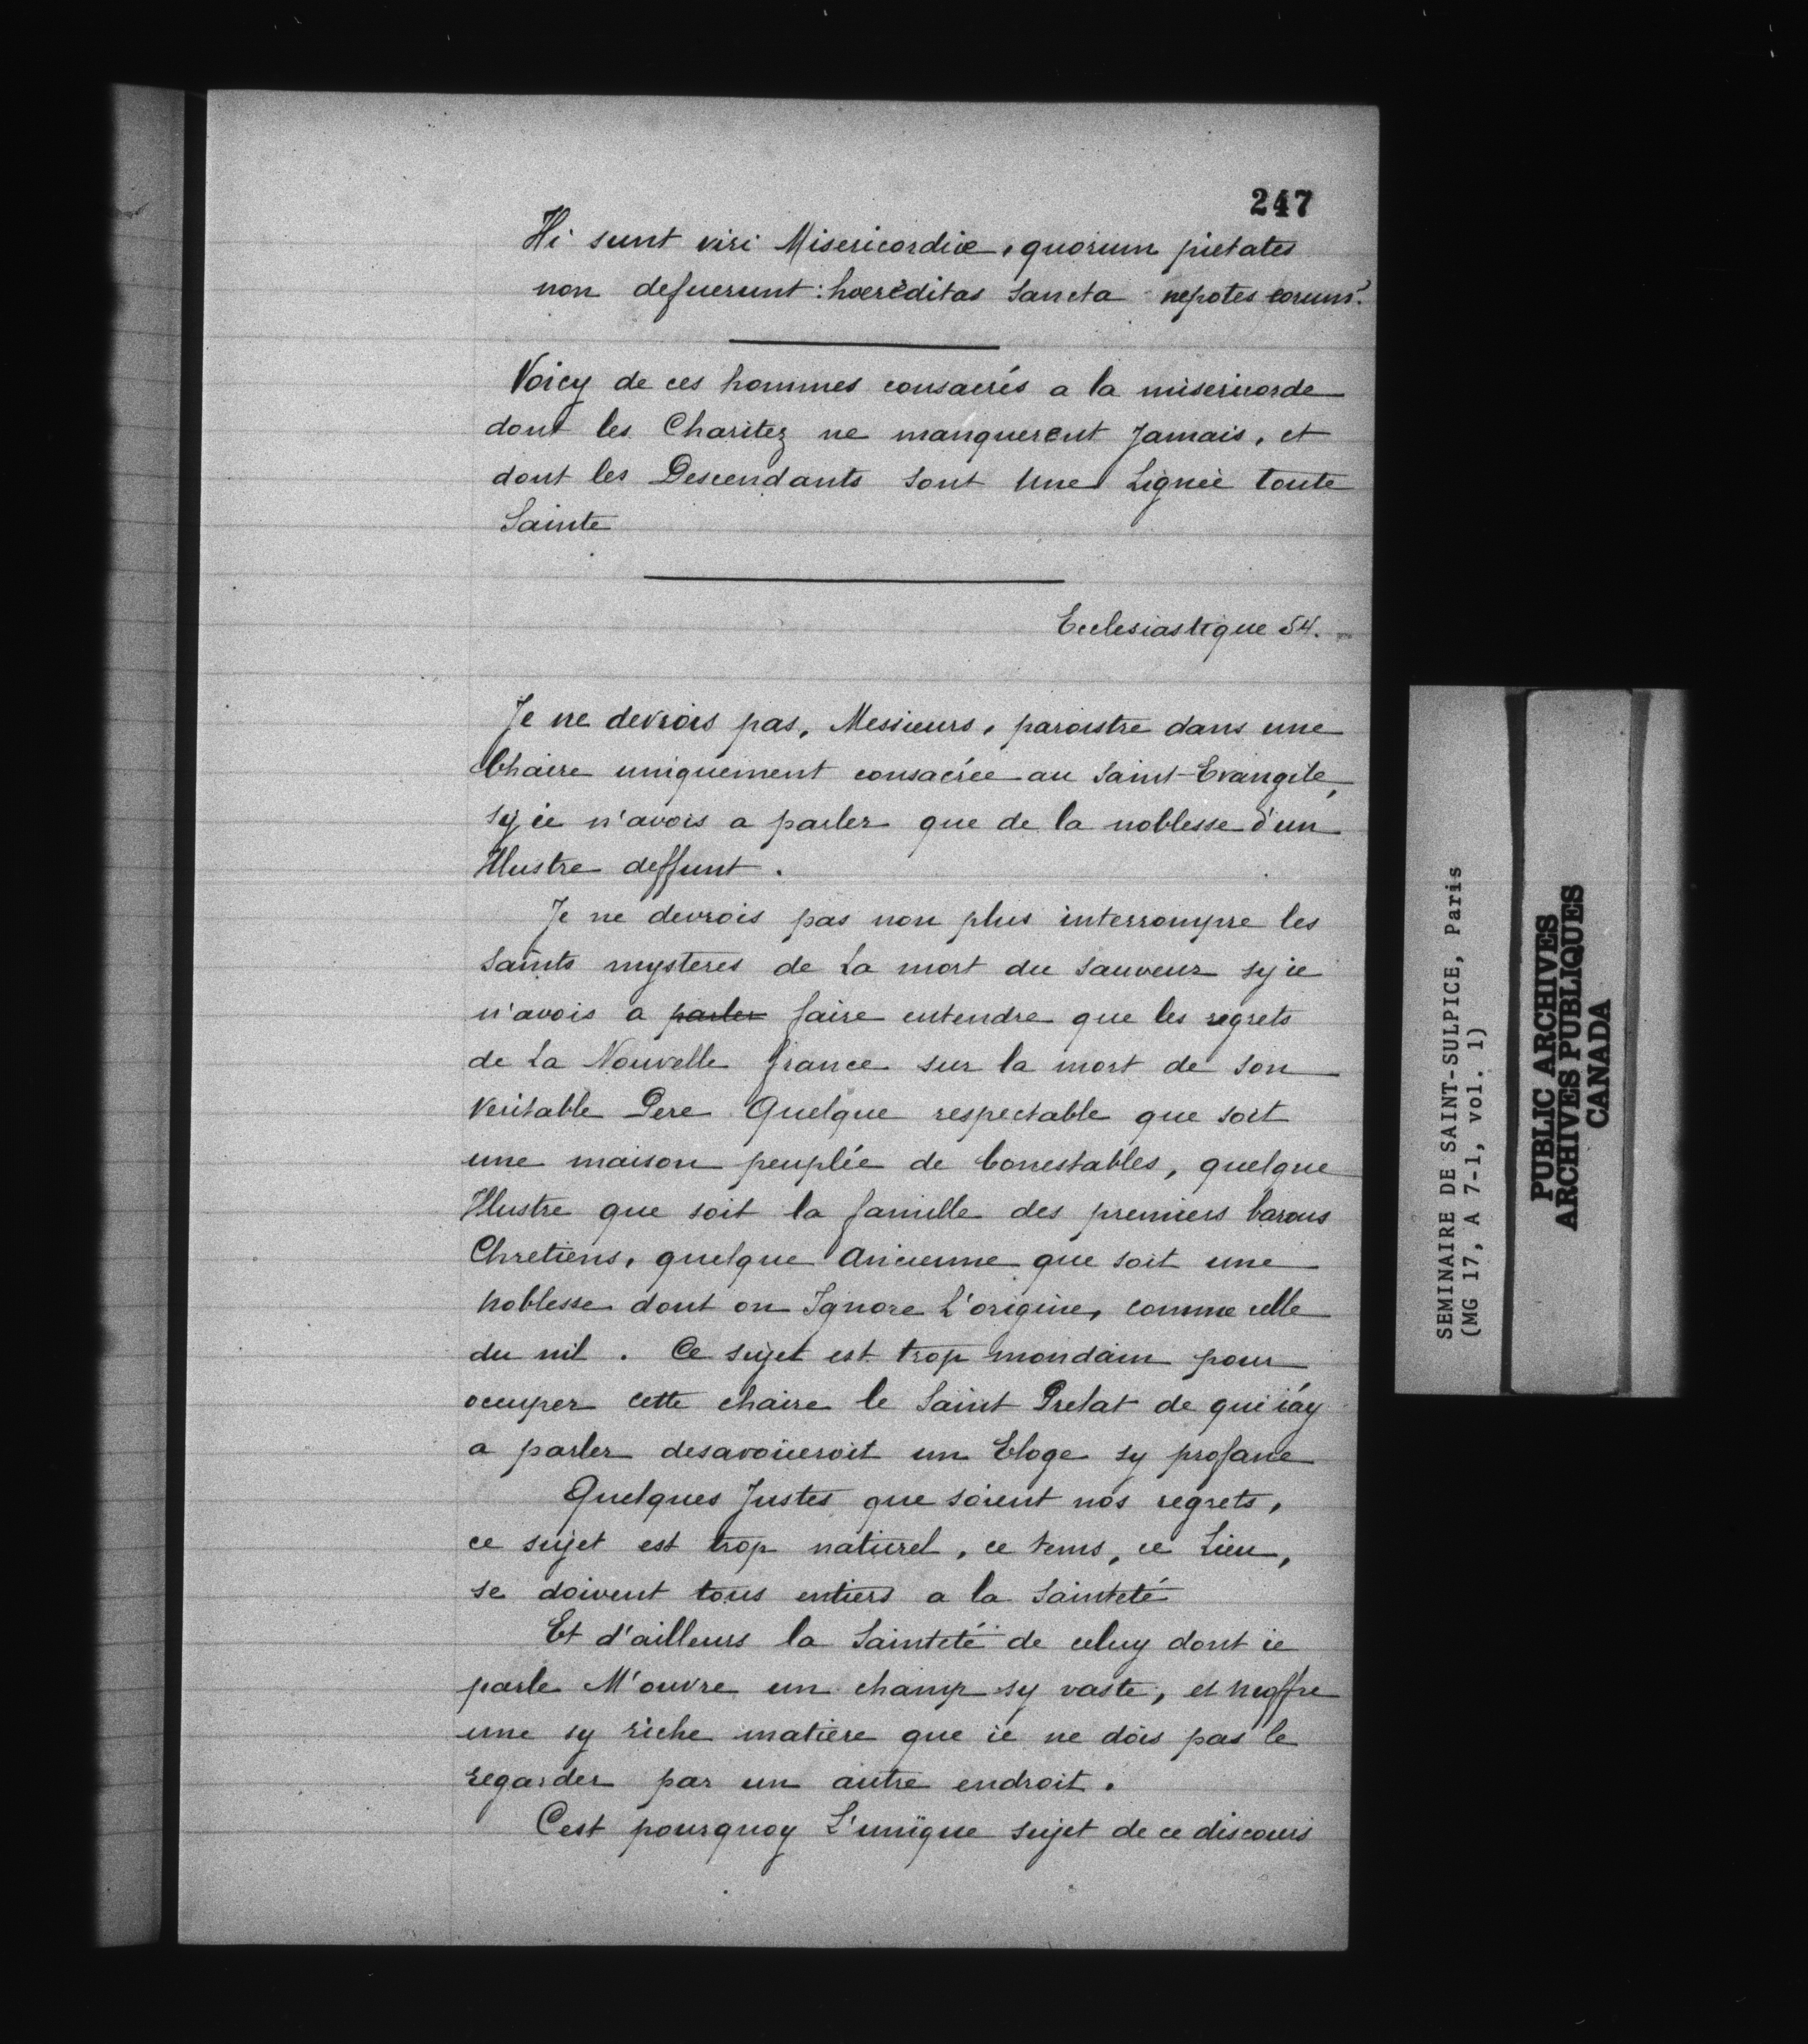 247
Hi sunt viri Misericordiæ, quorum pietates
non defuerunt: hoereditas Sancta nepotes eorum.
Voicy de ces hommes consacrés a la misericorde
dont les Charitez ne manquerent Jamais, et
dont les Descendants sont Une Lignée toute
Sainte
Ecclesiastique 54.
Je ne devrois pas, Messieurs, paroistre dans une
Chaire uniquement consacrée au Saint-Evangile,
sy ie n'avois a parler que de la noblesse d'un
Illustre deffunt.
Je ne devrois pas non plus interrompre les
Saints mysteres de La mort du Sauveur sy ie
n'avois a parler faire entendre que les regrets
de La Nouvelle france sur la mort de son
Veritable Pere Quelque respectable que soit
une maison peuplée de Connestables, quelque
Illustre que soit la famille des premiers barons
Chretiens, quelque Ancienne que soit une
noblesse dont on Ignore L'origine, comme celle
du nil. Ce sujet est trop mondain pour
ocuper cette chaire le Saint Prelat de qui i'ay
a parler desavoueroit un Eloge sy profane
Quelques Justes que soient nos regrets,
ce sujet est trop naturel, ce tems, ce Lieu,
se doivent tous entiers a la Sainteté
Et d'ailleurs la Sainteté de celuy dont ie
parle M'ouvre un champ sy vaste, et m'offre
une sy riche matiere que ie ne dois pas le
regarder par un autre endroit.
C'est pourquoy L'unique sujet de ce discours
SEMINAIRE DE SAINT-SULPICE, Paris
(MG 17, A 7-1, vol. 1)
PUBLIC ARCHIVES
ARCHIVES PUBLIQUES
CANADA